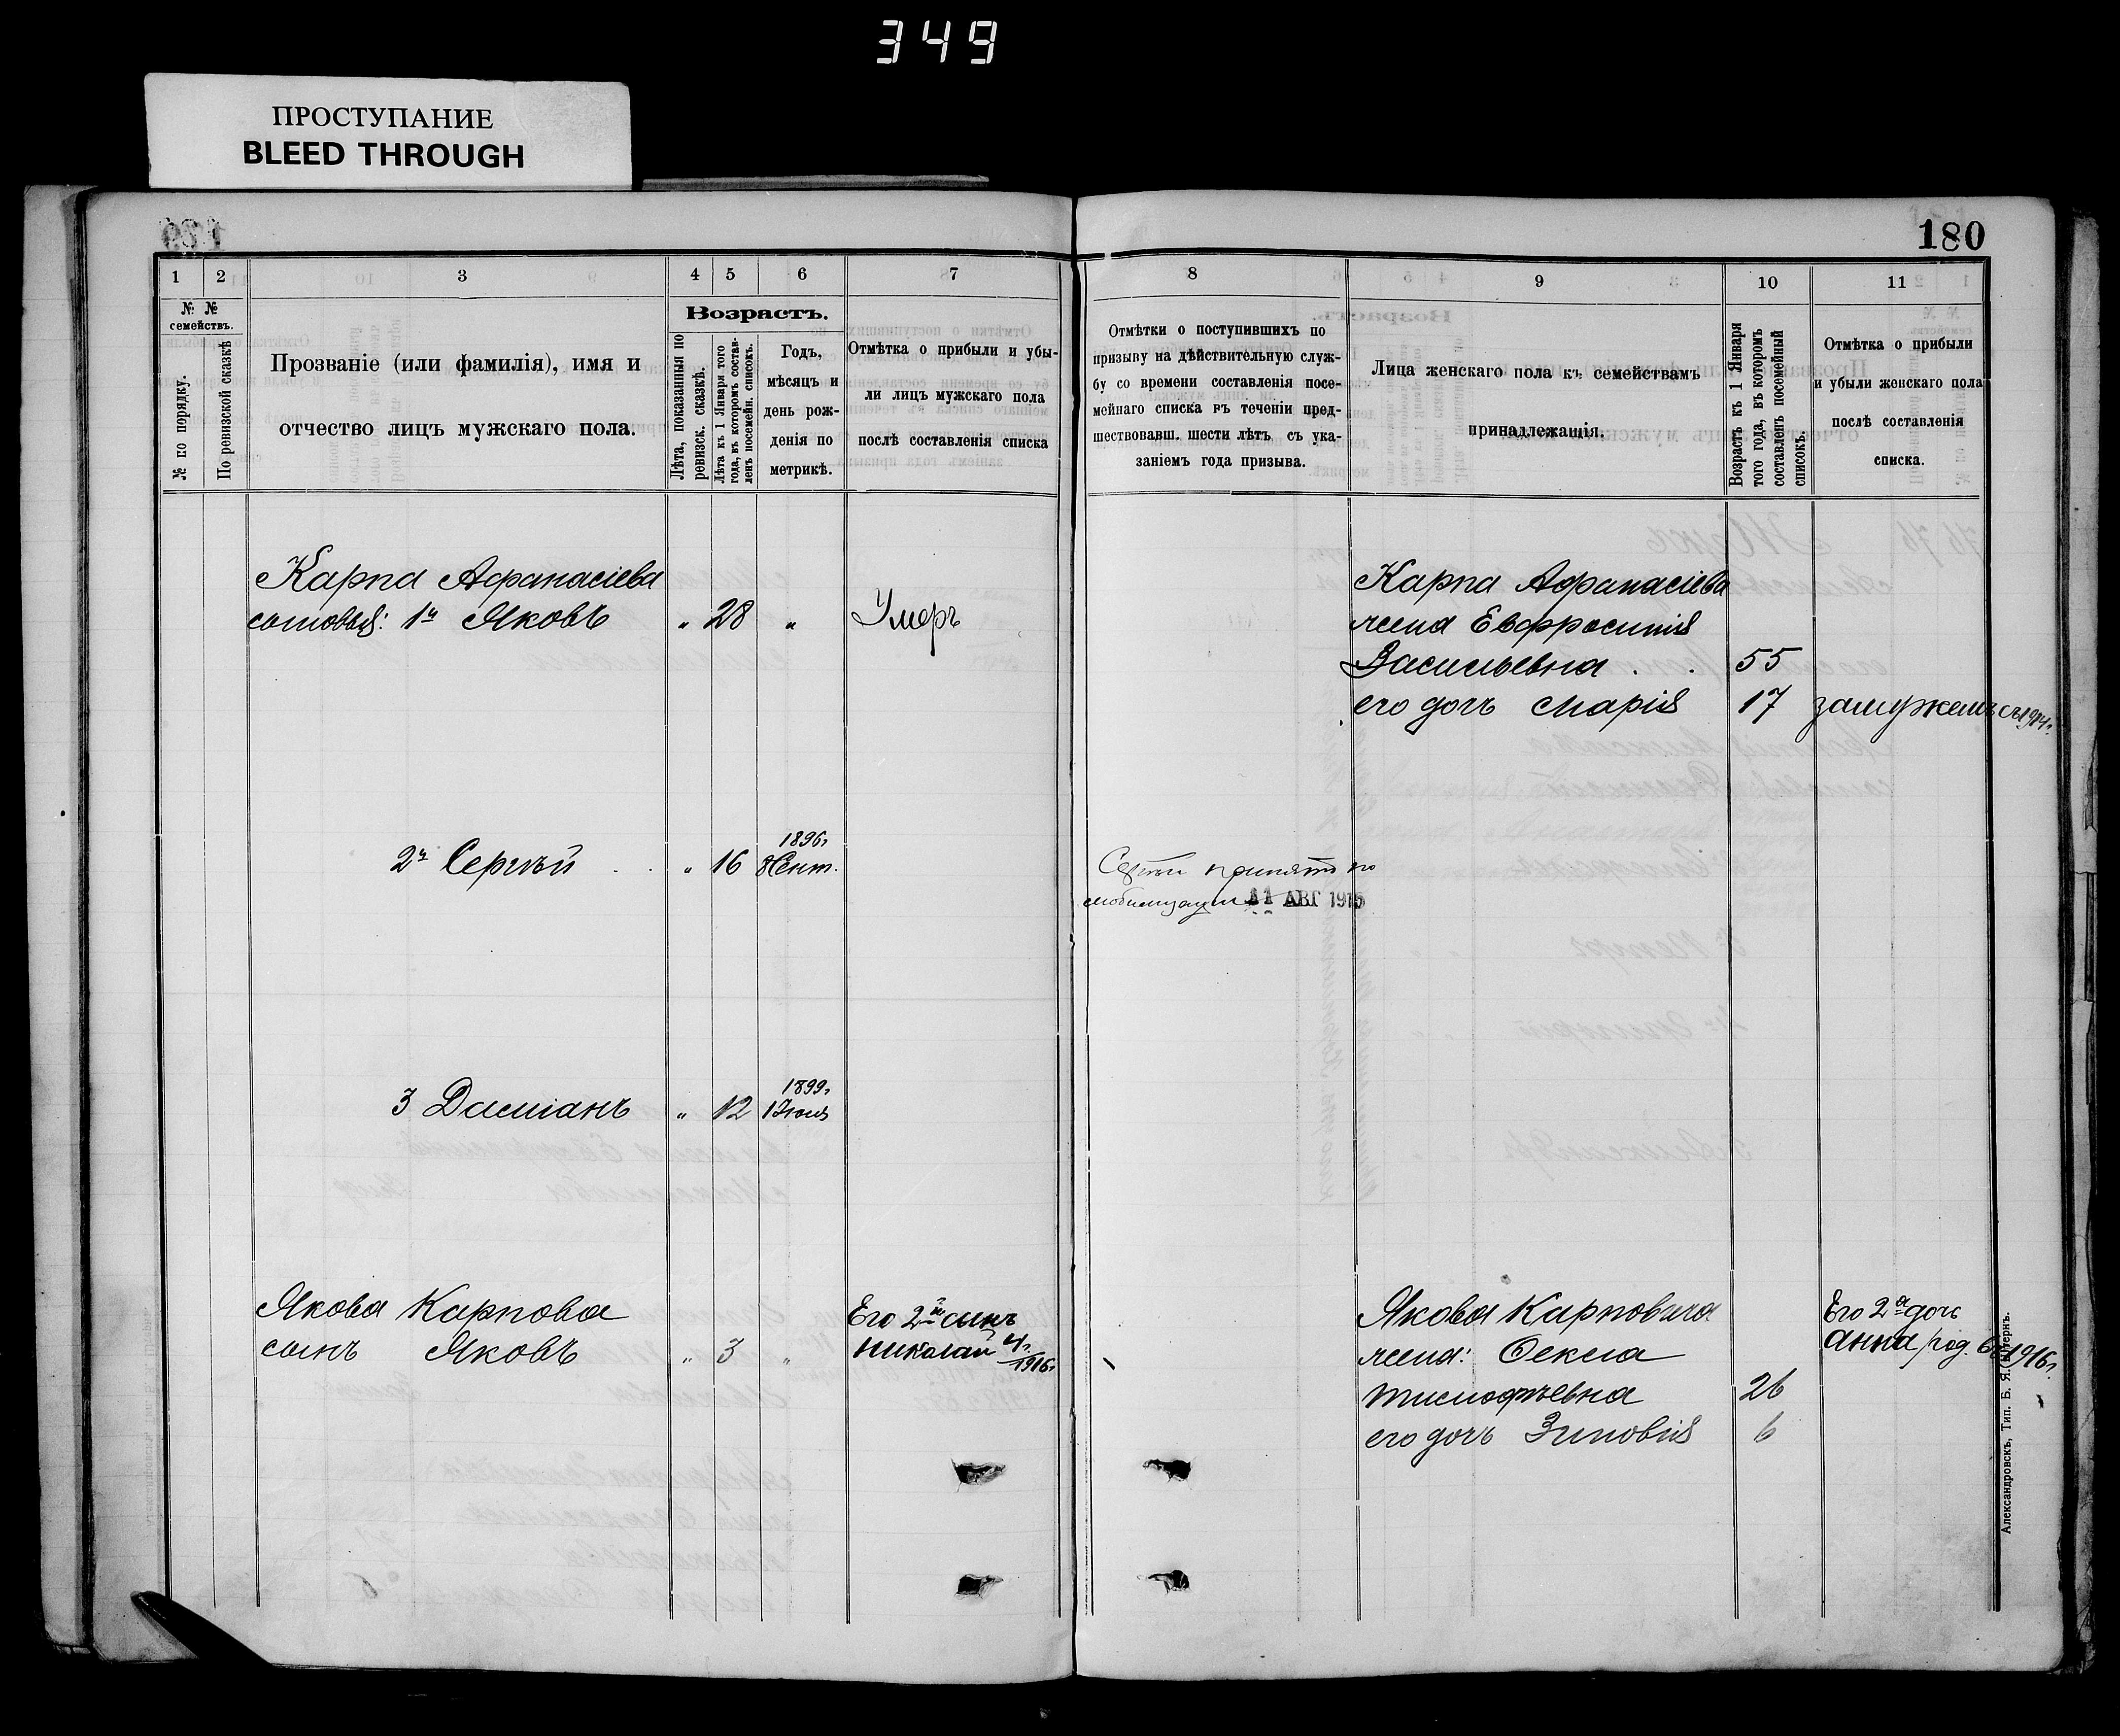 349
ПРОСТУПАНИЕ
BLEED THROUGH
180
1 2 3 4 5 6 7
№ № семействъ.
№ по порядку.
По ревизской сказкѣ
Прозваніе (или фамилія), имя и
отчество лицъ мужскаго пола.
Возрастъ.
Лѣта, показанныя по
ревизск. сказкѣ.
Лѣта къ 1 Января того
года, въ которомъ состав-
ленъ посемейн. списокъ.
Годъ,
мѣсяцъ и
день рож-
денія по
метрикѣ.
Отмѣтка о прибыли и убы-
ли лицъ мужскаго пола
послѣ составленія списка
Карпа Афанасіева
сыновья: 1й Яковъ " 28 " Умеръ
1896г
2й Сергѣй . . " 16 8 Сент.
1899г
3 Даміанъ " 12 1 Іюля
Якова Карпова
сынъ Яковъ " 3 "
Его 2й сынъ
Николай 4г.
1916г
8 9 10 11
Отмѣтки о поступившихъ по
призыву на дѣйствительную служ-
бу со времени составленія посе-
мейнаго списка въ теченіи пред-
шествовавш. шести лѣтъ съ ука-
заніемъ года призыва.
Лица женскаго пола къ семействамъ
принадлежащія.
Возрастъ къ 1 Января
того года, въ которомъ
составленъ посемейный
списокъ.
Отмѣтка о прибыли
и убыли женскаго пола
послѣ составленія
списка.
Карпа Афанасіева
жена Евфросинія
Васильевна . . 55
его дочь Марія 17 замужемъ съ 1914г.
Сергѣй принятъ по
мобилизаціи 11 АВГ 1915
Якова Карповича
жена: Фекла
Тимофѣевна 26
его дочь Зиновія 6
Его 2я дочь
Анна род. 1916г.
Александровскъ, Тип. Б. Я.